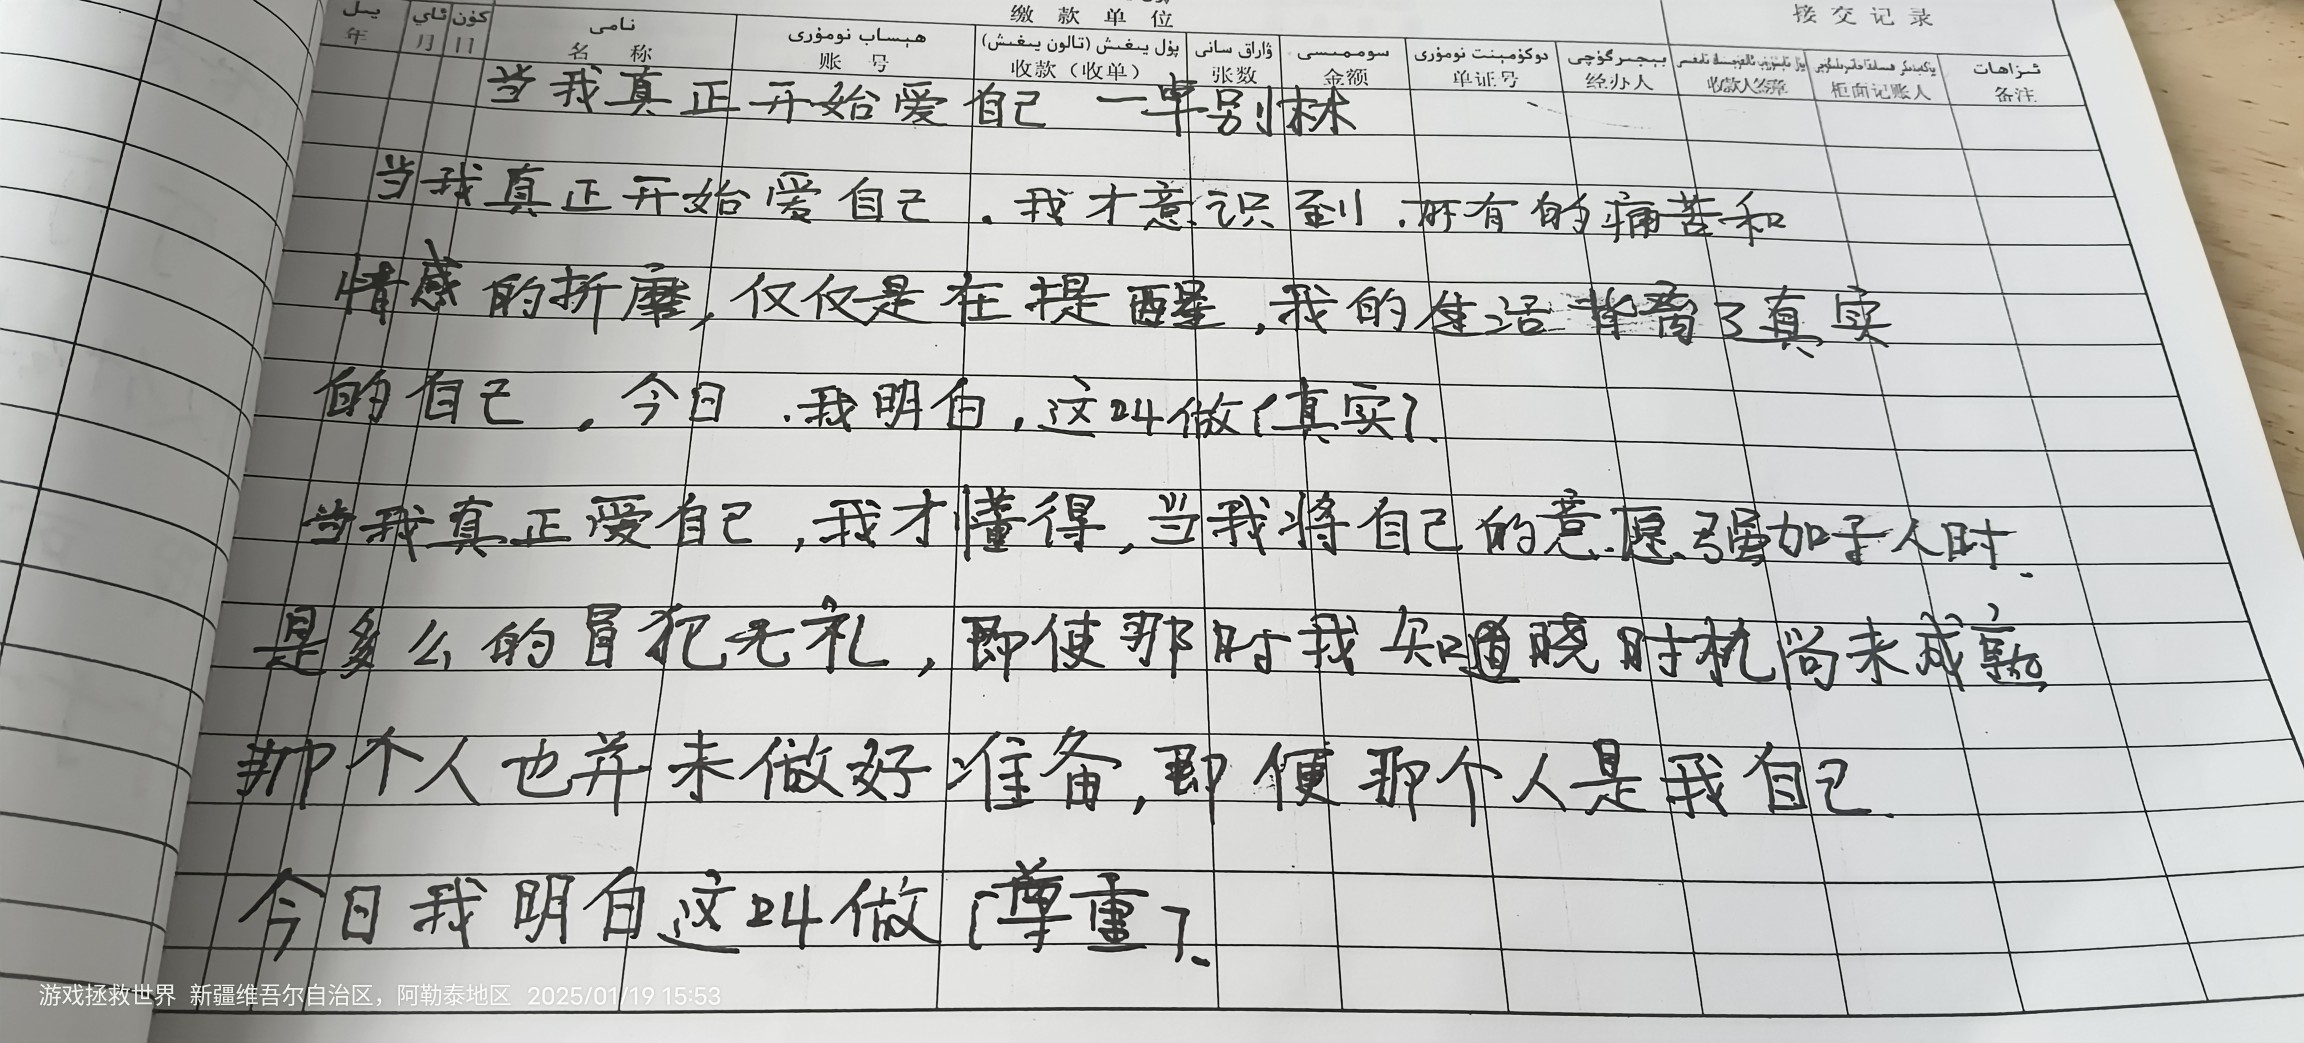 缴款单位 接交记录
يىل ئاي كۈن نامى ھېساب نومۇرى پۇل يىغىش (تالون يىغىش) ۋاراق سانى سوممىسى دوكۇمېنت نومۇرى بېجىرگۈچى ئىزاھات
年 月 日 名称 账号 收款（收单） 张数 金额 单证号 经办人 收款人签章 柜面记账人 备注
当我真正开始爱自己 一卓别林
当我真正开始爱自己.我才意识到.所有的痛苦和
情感的折磨,仅仅是在提醒,我的生活背离了真实
的自己.今日.我明白.这叫做「真实」.
当我真正爱自己,我才懂得,当我将自己的意愿强加于人时.
是多么的冒犯无礼,即使那时我知道晓时机尚未成熟,
那个人也并未做好准备,即便那个人是我自己.
今日我明白这叫做「尊重」.
游戏拯救世界 新疆维吾尔自治区，阿勒泰地区 2025/01/19 15:53